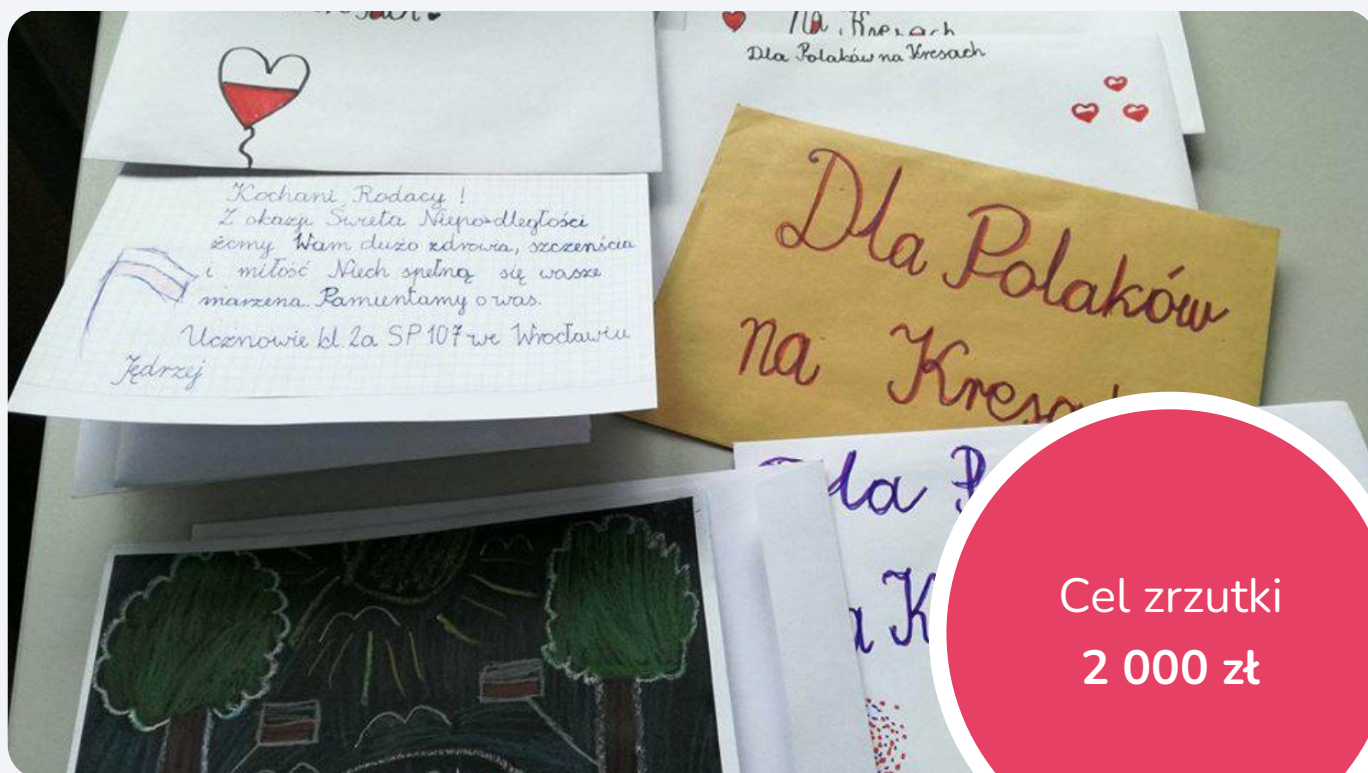 Na Kresach
Dla Polaków na Kresach
Kochani Rodacy!
Z okazji Swieta Niepodległości
żomy Wam dużo zdrowia, szczenścia
i miłość Niech spełną się wasze
marzena. Pamientamy o was.
Ucznowie kl. 2a SP 107 we Wrocławiu
Jędrzej
Dla Polaków
na
Dla
Cel zrzutki
2 000 zł